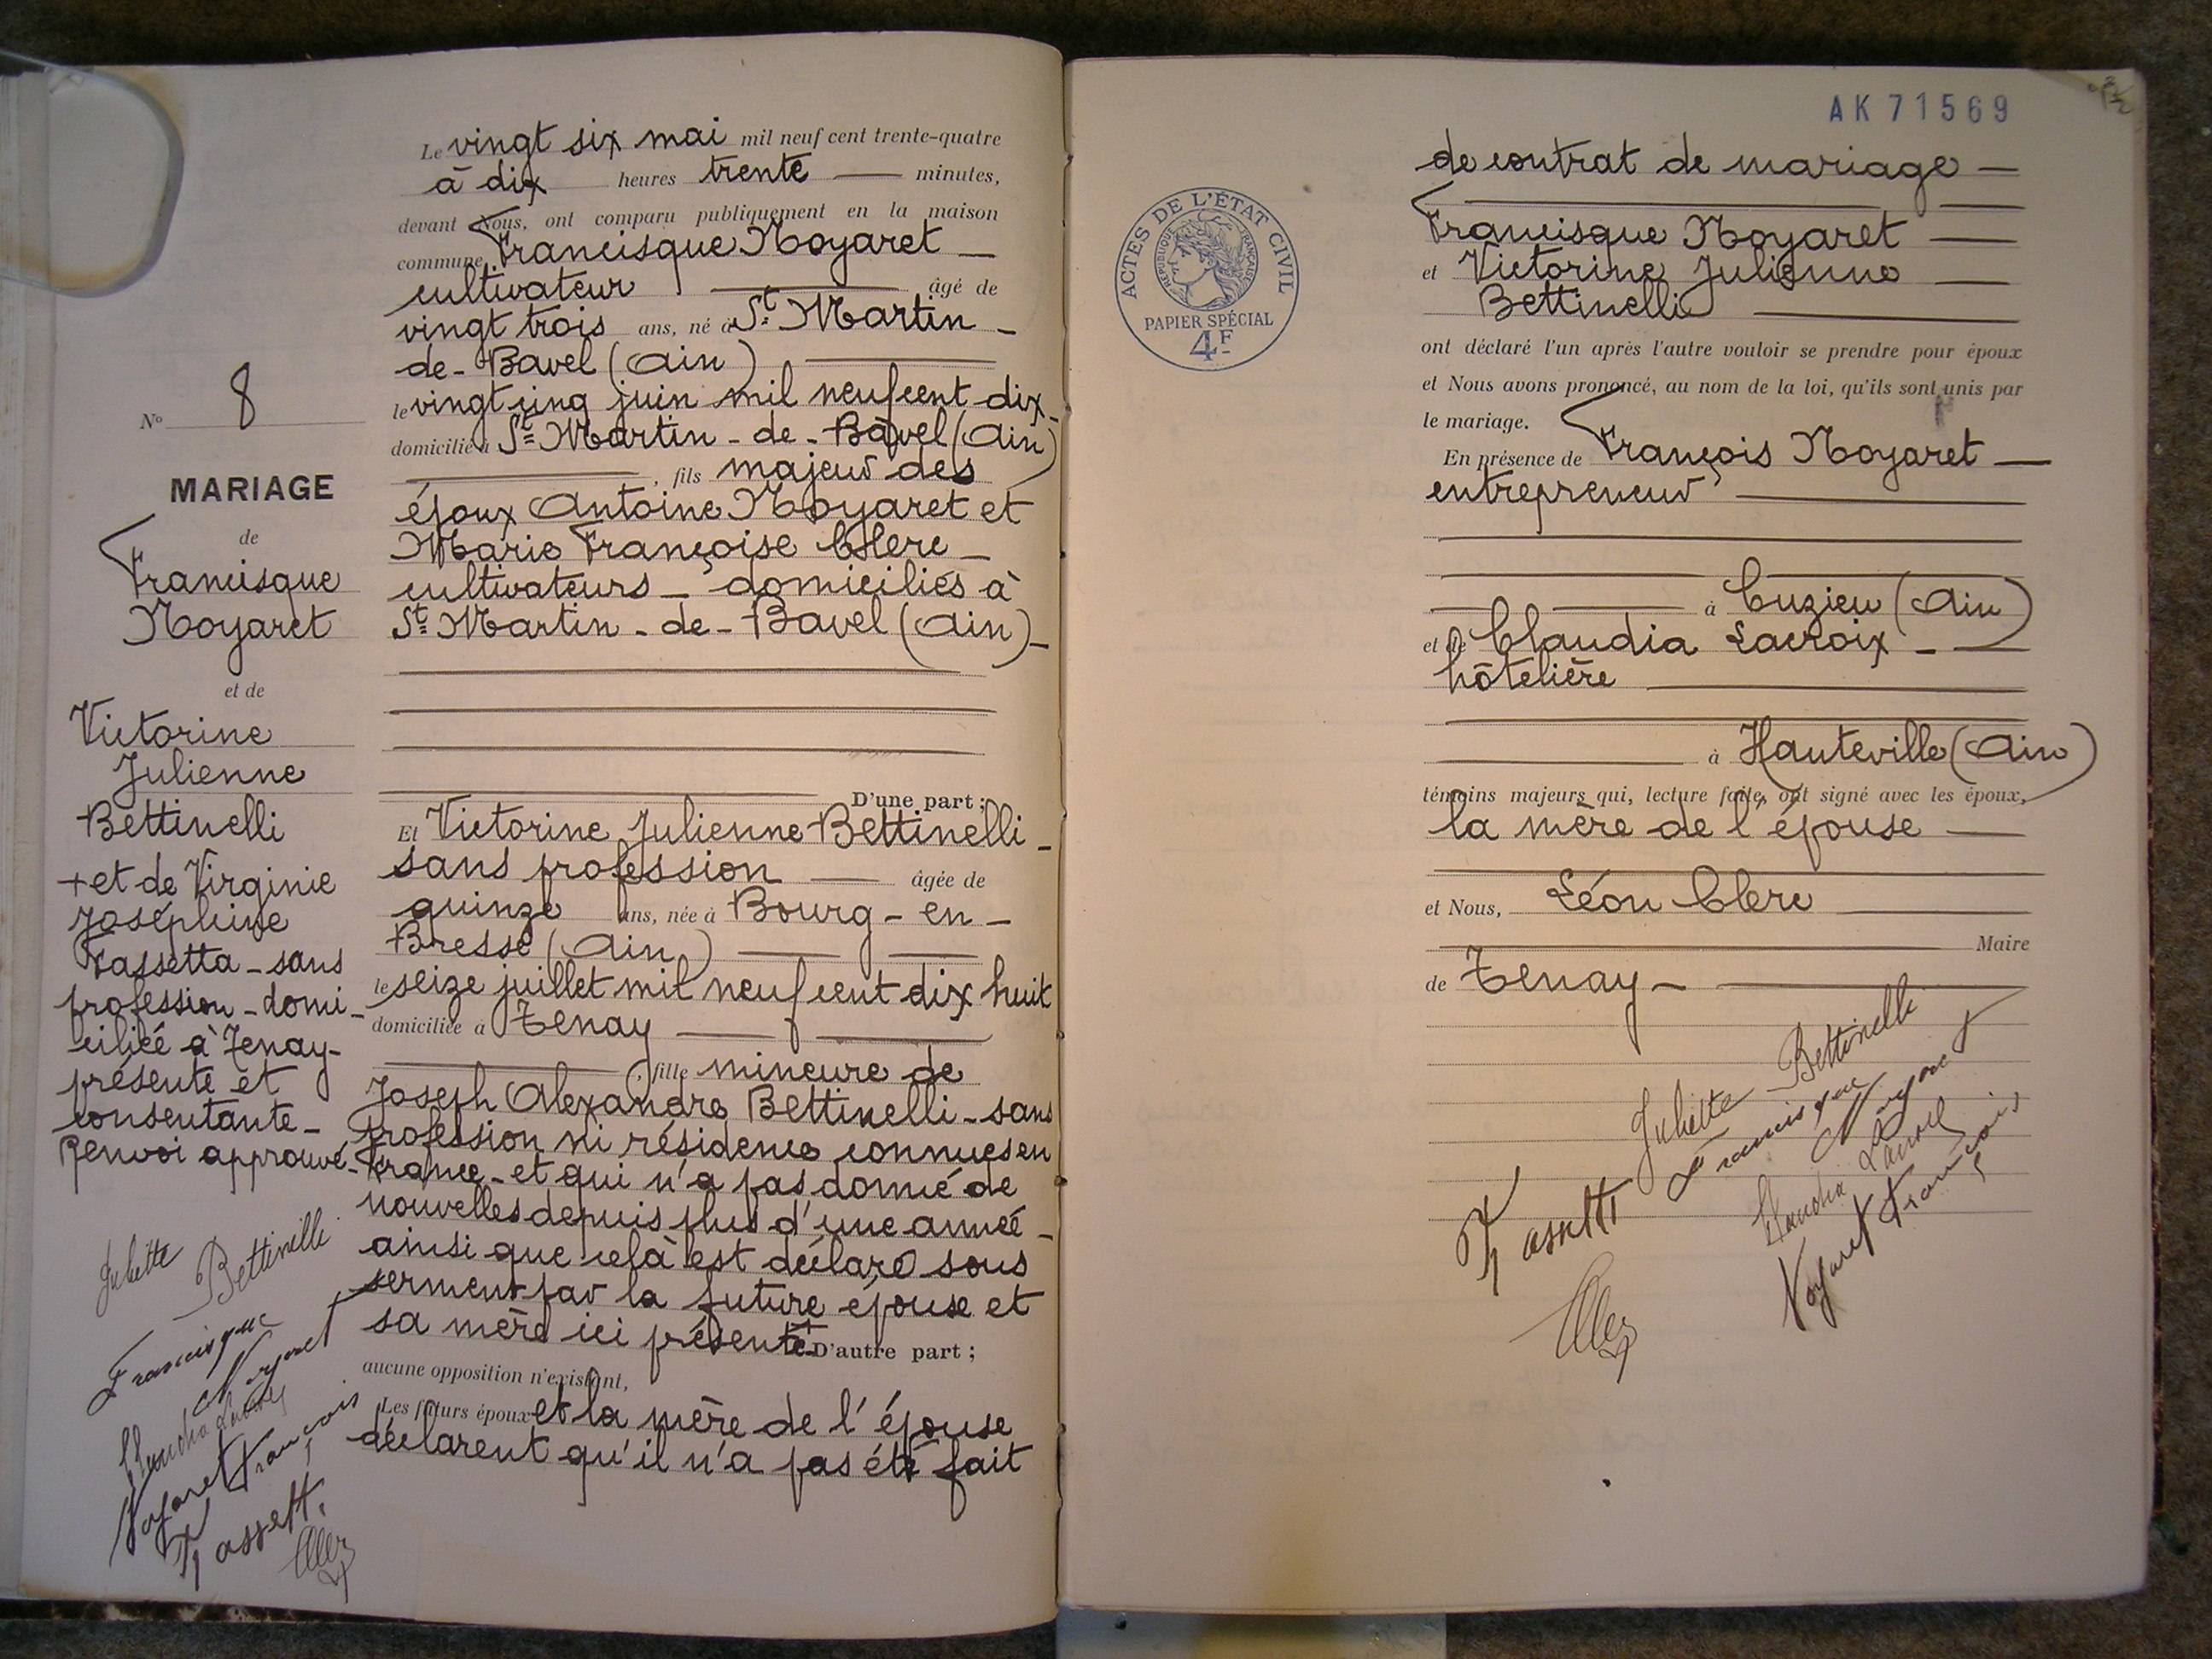 Nº 8
MARIAGE
de
Francisque
Noyaret
et de
Victorine
Julienne
Bettinelli
+ et de Virginie
Joséphine
Fassetta - sans
profession - domi-
ciliée à Tenay -
présente et
consentante -
Renvoi approuvé -
Juliette Bettinelli
Francisque
Noyaret
Claudia Lacroix
Noyaret François
Fassetti
Clerc
Le vingt six mai mil neuf cent trente-quatre
à dix heures trente — minutes,
devant Nous, ont comparu publiquement en la maison
commune, Francisque Noyaret —
cultivateur — âgé de
vingt trois ans, né à St Martin -
de - Bavel (Ain) —
le vingt cinq juin mil neuf cent dix -
domicilié à St Martin - de - Bavel (Ain)
—, fils majeur des
époux Antoine Noyaret et
Marie Françoise Clerc -
cultivateurs - domiciliés à
St Martin - de - Bavel (Ain) -
D'une part ;
Et Victorine Julienne Bettinelli -
sans profession — âgée de
quinze ans, née à Bourg - en -
Bresse (Ain) —
le seize juillet mil neuf cent dix huit
domiciliée à Tenay —
—, fille mineure de
Joseph Alexandre Bettinelli - sans
profession ni résidence connues en
France - et qui n'a pas donné de
nouvelles depuis plus d'une année -
ainsi que celà est déclaré sous
serment par la future épouse et
sa mère ici présente + D'autre part ;
aucune opposition n'existant,
Les futurs époux et la mère de l'épouse
déclarent qu'il n'a pas été fait
AK 71569
ACTES DE L'ÉTAT CIVIL
RÉPUBLIQUE FRANÇAISE
PAPIER SPÉCIAL
4F
de contrat de mariage —
Francisque Noyaret —
et Victorine Julienne —
Bettinelli —
ont déclaré l'un après l'autre vouloir se prendre pour époux
et Nous avons prononcé, au nom de la loi, qu'ils sont unis par
le mariage.
En présence de François Noyaret —
entrepreneur —
à Cuzieu (Ain)
et de Claudia Lacroix - —
hôtelière —
à Hauteville (Ain)
témoins majeurs qui, lecture faite, ont signé avec les époux,
la mère de l'épouse —
et Nous, Léon Clerc —
Maire
de Tenay - —
Juliette Bettinelli
Francisque Noyaret
Claudia Lacroix
Noyaret François
Fassetti
Clerc